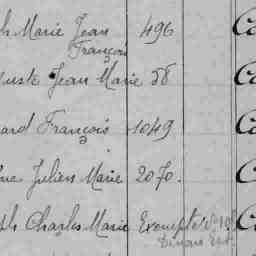 h Marie Jean 496
François
uste Jean Marie 58
ard François 1049
ne Julien Marie 2070.
ph Charles Marie Exempté